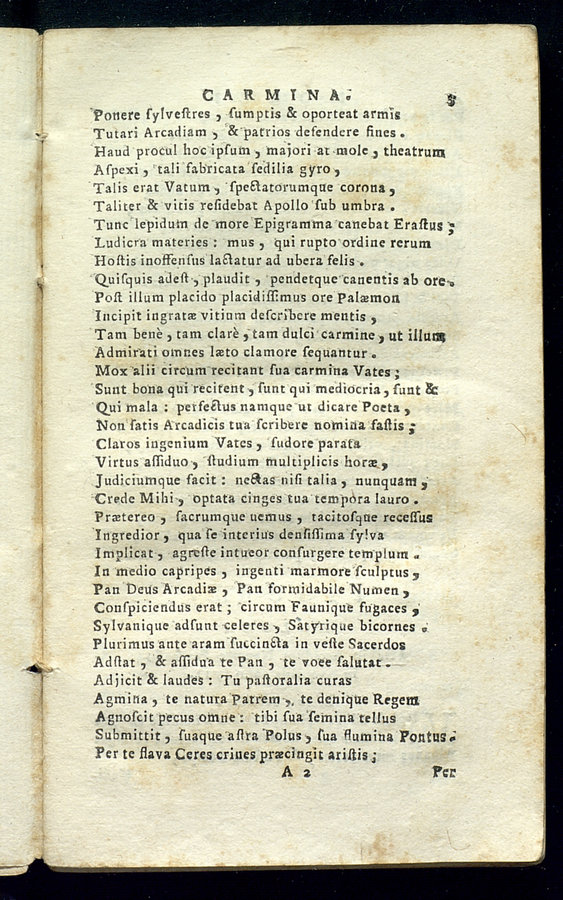 CARMINA. 5
Ponere ſylveſtres , ſumptis & oporteat armis
Tutari Arcadiam , & patrios defendere fines .
Haud procul hoc ipſum , majori at mole , theatrum
Aſpexi , tali fabricata ſedilia gyro ,
Talis erat Vatum , ſpectatorumque corona ,
Taliter & vitis reſidebat Apollo ſub umbra .
Tunc lepidum de more Epigramma canebat Eraſtus ;
Ludicra materies : mus , qui rupto ordine rerum
Hoſtis inoffenſus lactatur ad ubera felis .
Quiſquis adeſt , plaudit , pendetque canentis ab ore .
Poſt illum placido placidiſſimus ore Palæmon
Incipit ingratæ vitium deſcribere mentis ,
Tam benè , tam clarè , tam dulci carmine , ut illum
Admirati omnes læto clamore ſequantur .
Mox alii circum recitant ſua carmina Vates ;
Sunt bona qui recitent , ſunt qui mediocria , ſunt &
Qui mala : perfectus namque ut dicare Poeta ,
Non ſatis Arcadicis tua ſcribere nomina faſtis ;
Claros ingenium Vates , ſudore parata
Virtus aſſiduo , ſtudium multiplicis horæ ,
Judiciumque facit : nectas niſi talia , nunquam ,
Crede Mihi , optata cinges tua tempora lauro .
Prætereo , ſacrumque nemus , tacitoſque receſſus
Ingredior , qua ſe interius denſiſſima ſylva
Implicat , agreſte intueor conſurgere templum .
In medio capripes , ingenti marmore ſculptus ,
Pan Deus Arcadiæ , Pan formidabile Numen ,
Conſpiciendus erat ; circum Faunique fugaces ,
Sylvanique adſunt celeres , Satyrique bicornes .
Plurimus ante aram ſuccincta in veſte Sacerdos
Adſtat , & aſſidua te Pan , te voce ſalutat .
Adjicit & laudes : Tu paſtoralia curas
Agmina , te natura Patrem , te denique Regem
Agnoſcit pecus omne : tibi ſua ſemina tellus
Submittit , ſuaque aſtra Polus , ſua flumina Pontus .
Per te flava Ceres crines præcingit ariſtis ;
A 2 Per